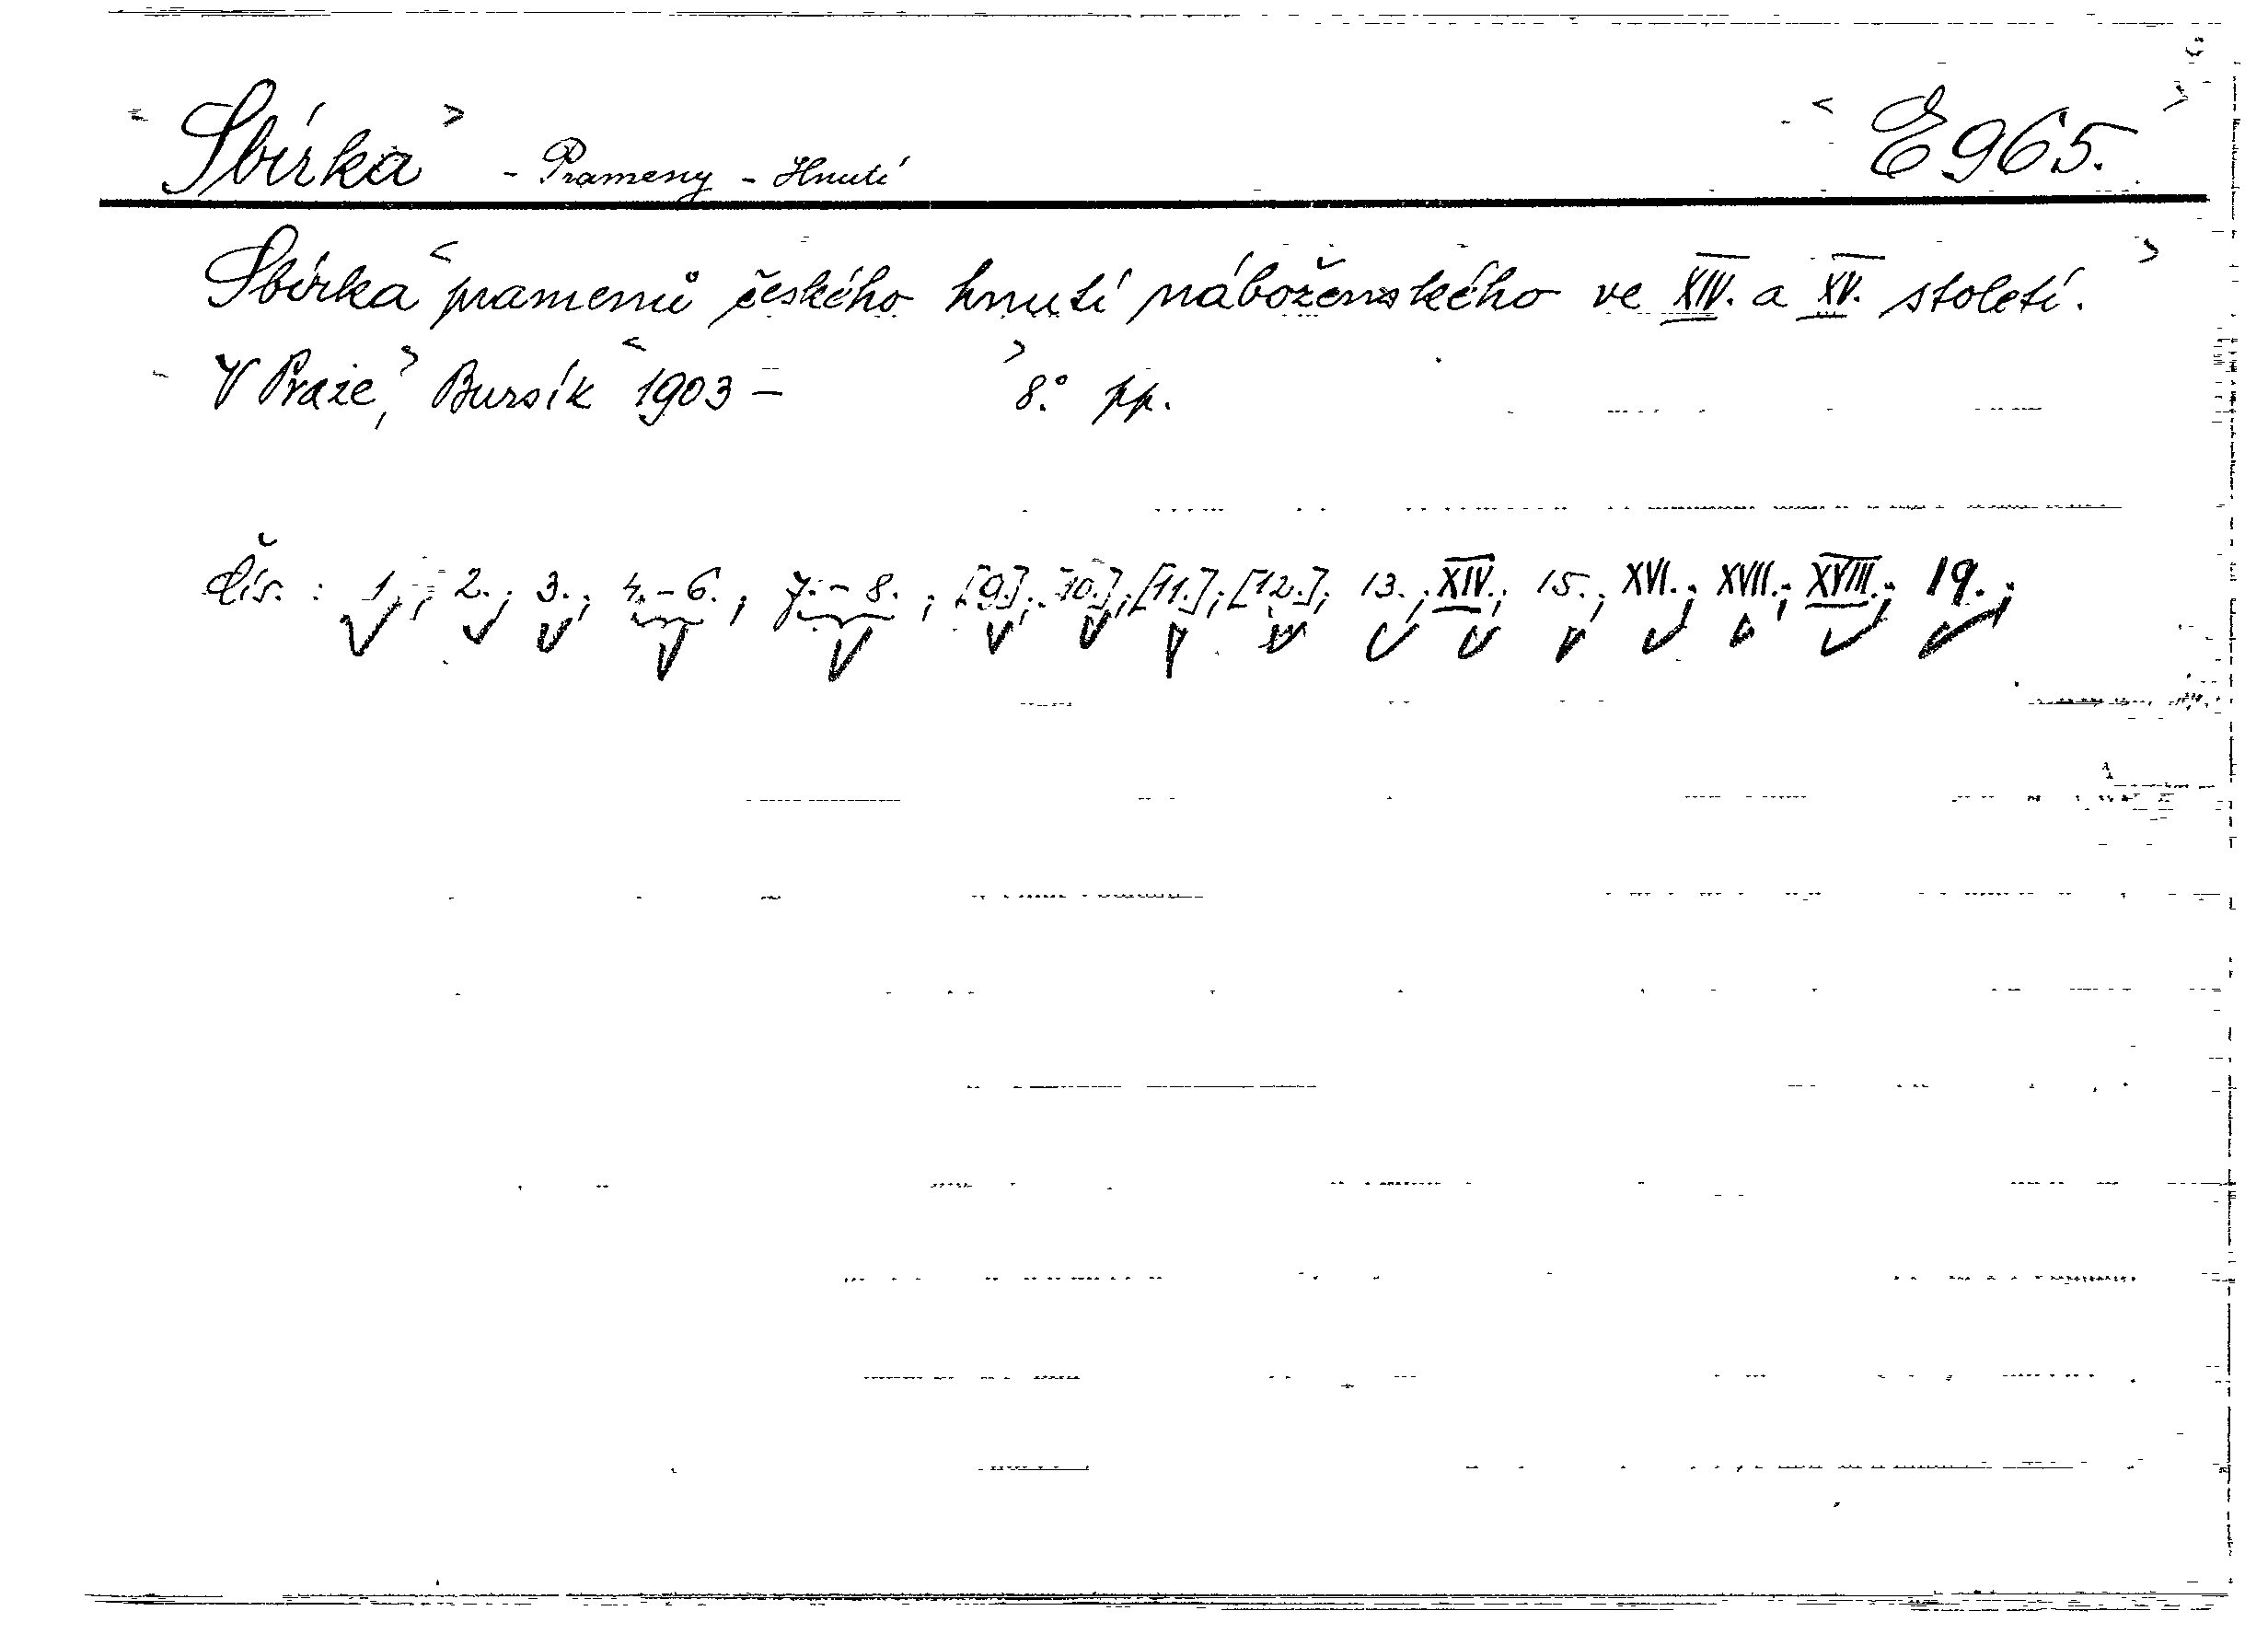 Sbírka - Prameny - Hnutí E 965.
Sbírka pramenů českého hnutí náboženského ve XIV. a XV. století.
V Praze, Bursík 1903 - 8.° pp.
čís. : 1.; 2.; 3.; 4.-6.; 7.-8.; [9.]; [10.]; [11.]; [12.]; 13.; XIV.; 15.; XVI.; XVII.; XVIII.; 19.;